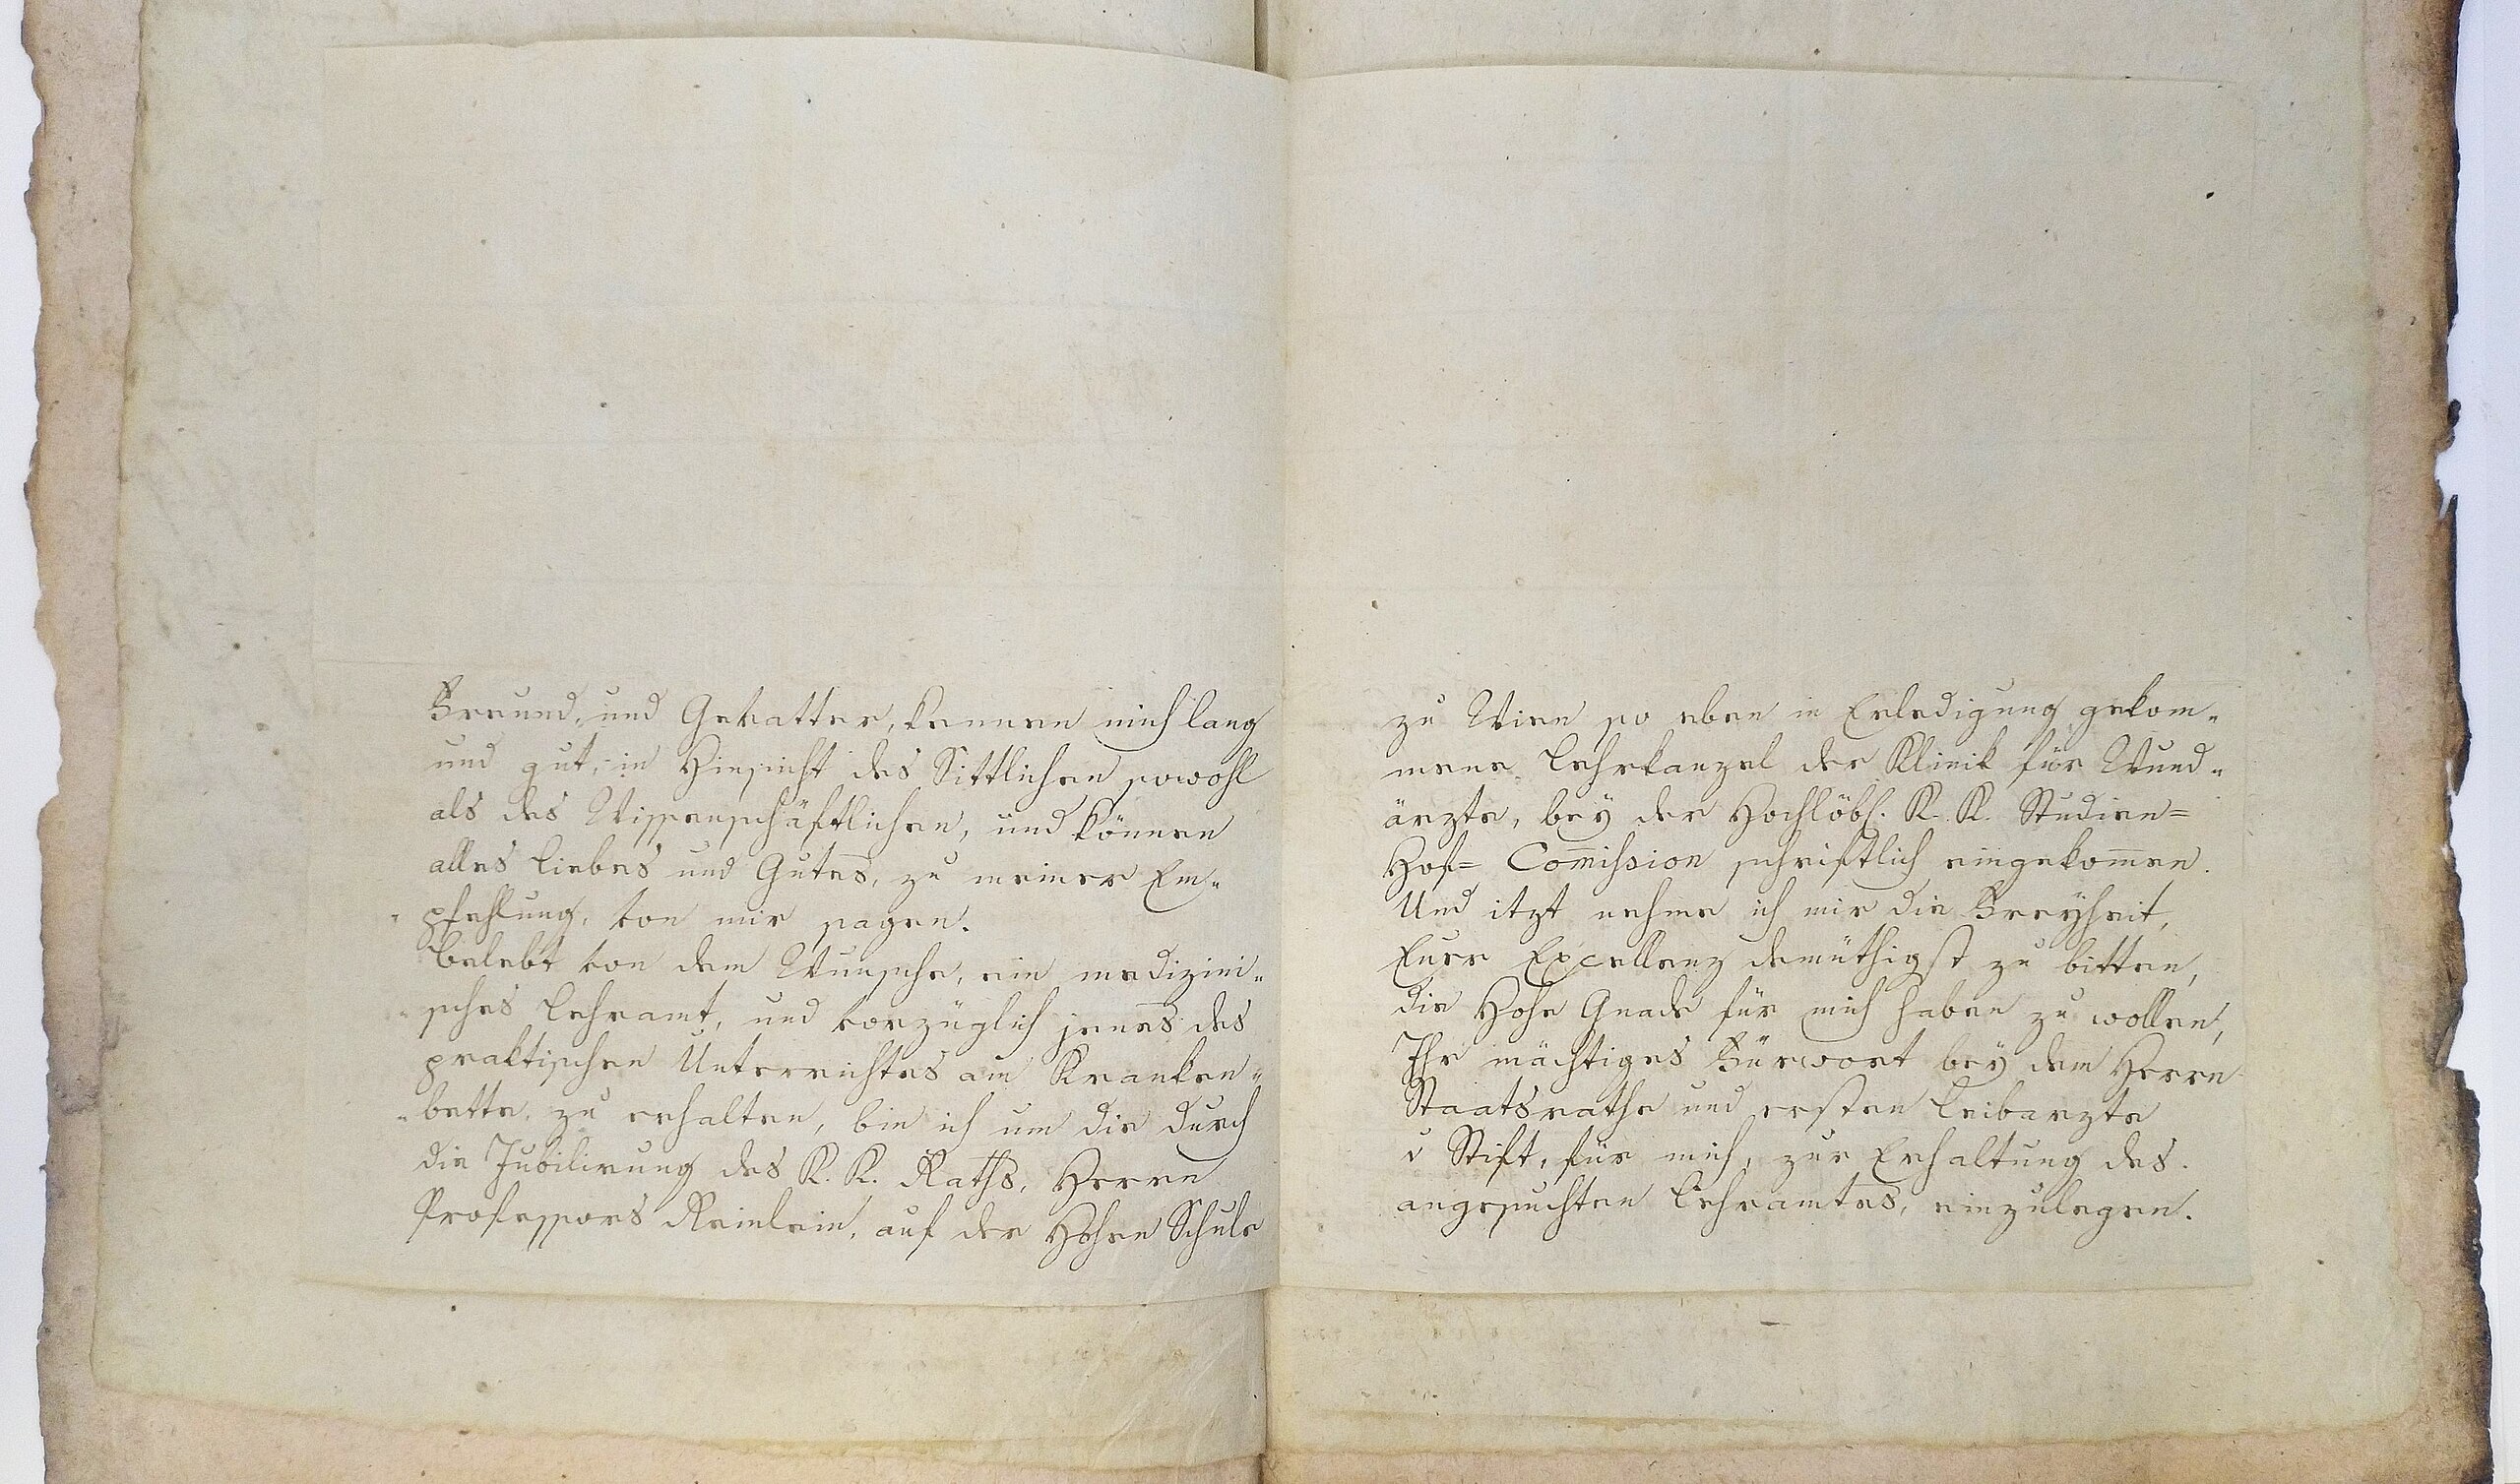 Freund, und Gevatter, kennen mich lang
und gut, in Hinsicht des Sittlichen sowohl
als des Wissenschäftlichen, und können
alles Liebes und Gutes, zu meiner Em-
-pfehlung, von mir sagen.
Belebt von dem Wunsche, ein medizini-
-sches Lehramt, und vorzüglich jenes des
praktischen Unterrichtes am Kranken-
-bette, zu erhalten, bin ich um die durch
die Jubilirung des K. K. Raths, Herrn
Professors Reinlein, auf der Hohen Schule
zu Wien so eben in Erledigung gekom-
mene Lehrkanzel der Klinik für Wund-
ärzte, bey der Hochlöbl. K. K. Studien=
Hof= Com̄ission schriftlich eingekom̄en.
Und itzt nehme ich mir die Freyheit,
Euer Excellenz demüthigst zu bitten,
die Hohe Gnade für mich haben zu wollen,
Ihr mächtiges Fürwort bey dem Herrn
Staatsrathe und ersten Leibarzte
v Stift, für mich, zur Erhaltung des
angesuchten Lehramtes, einzulegen.